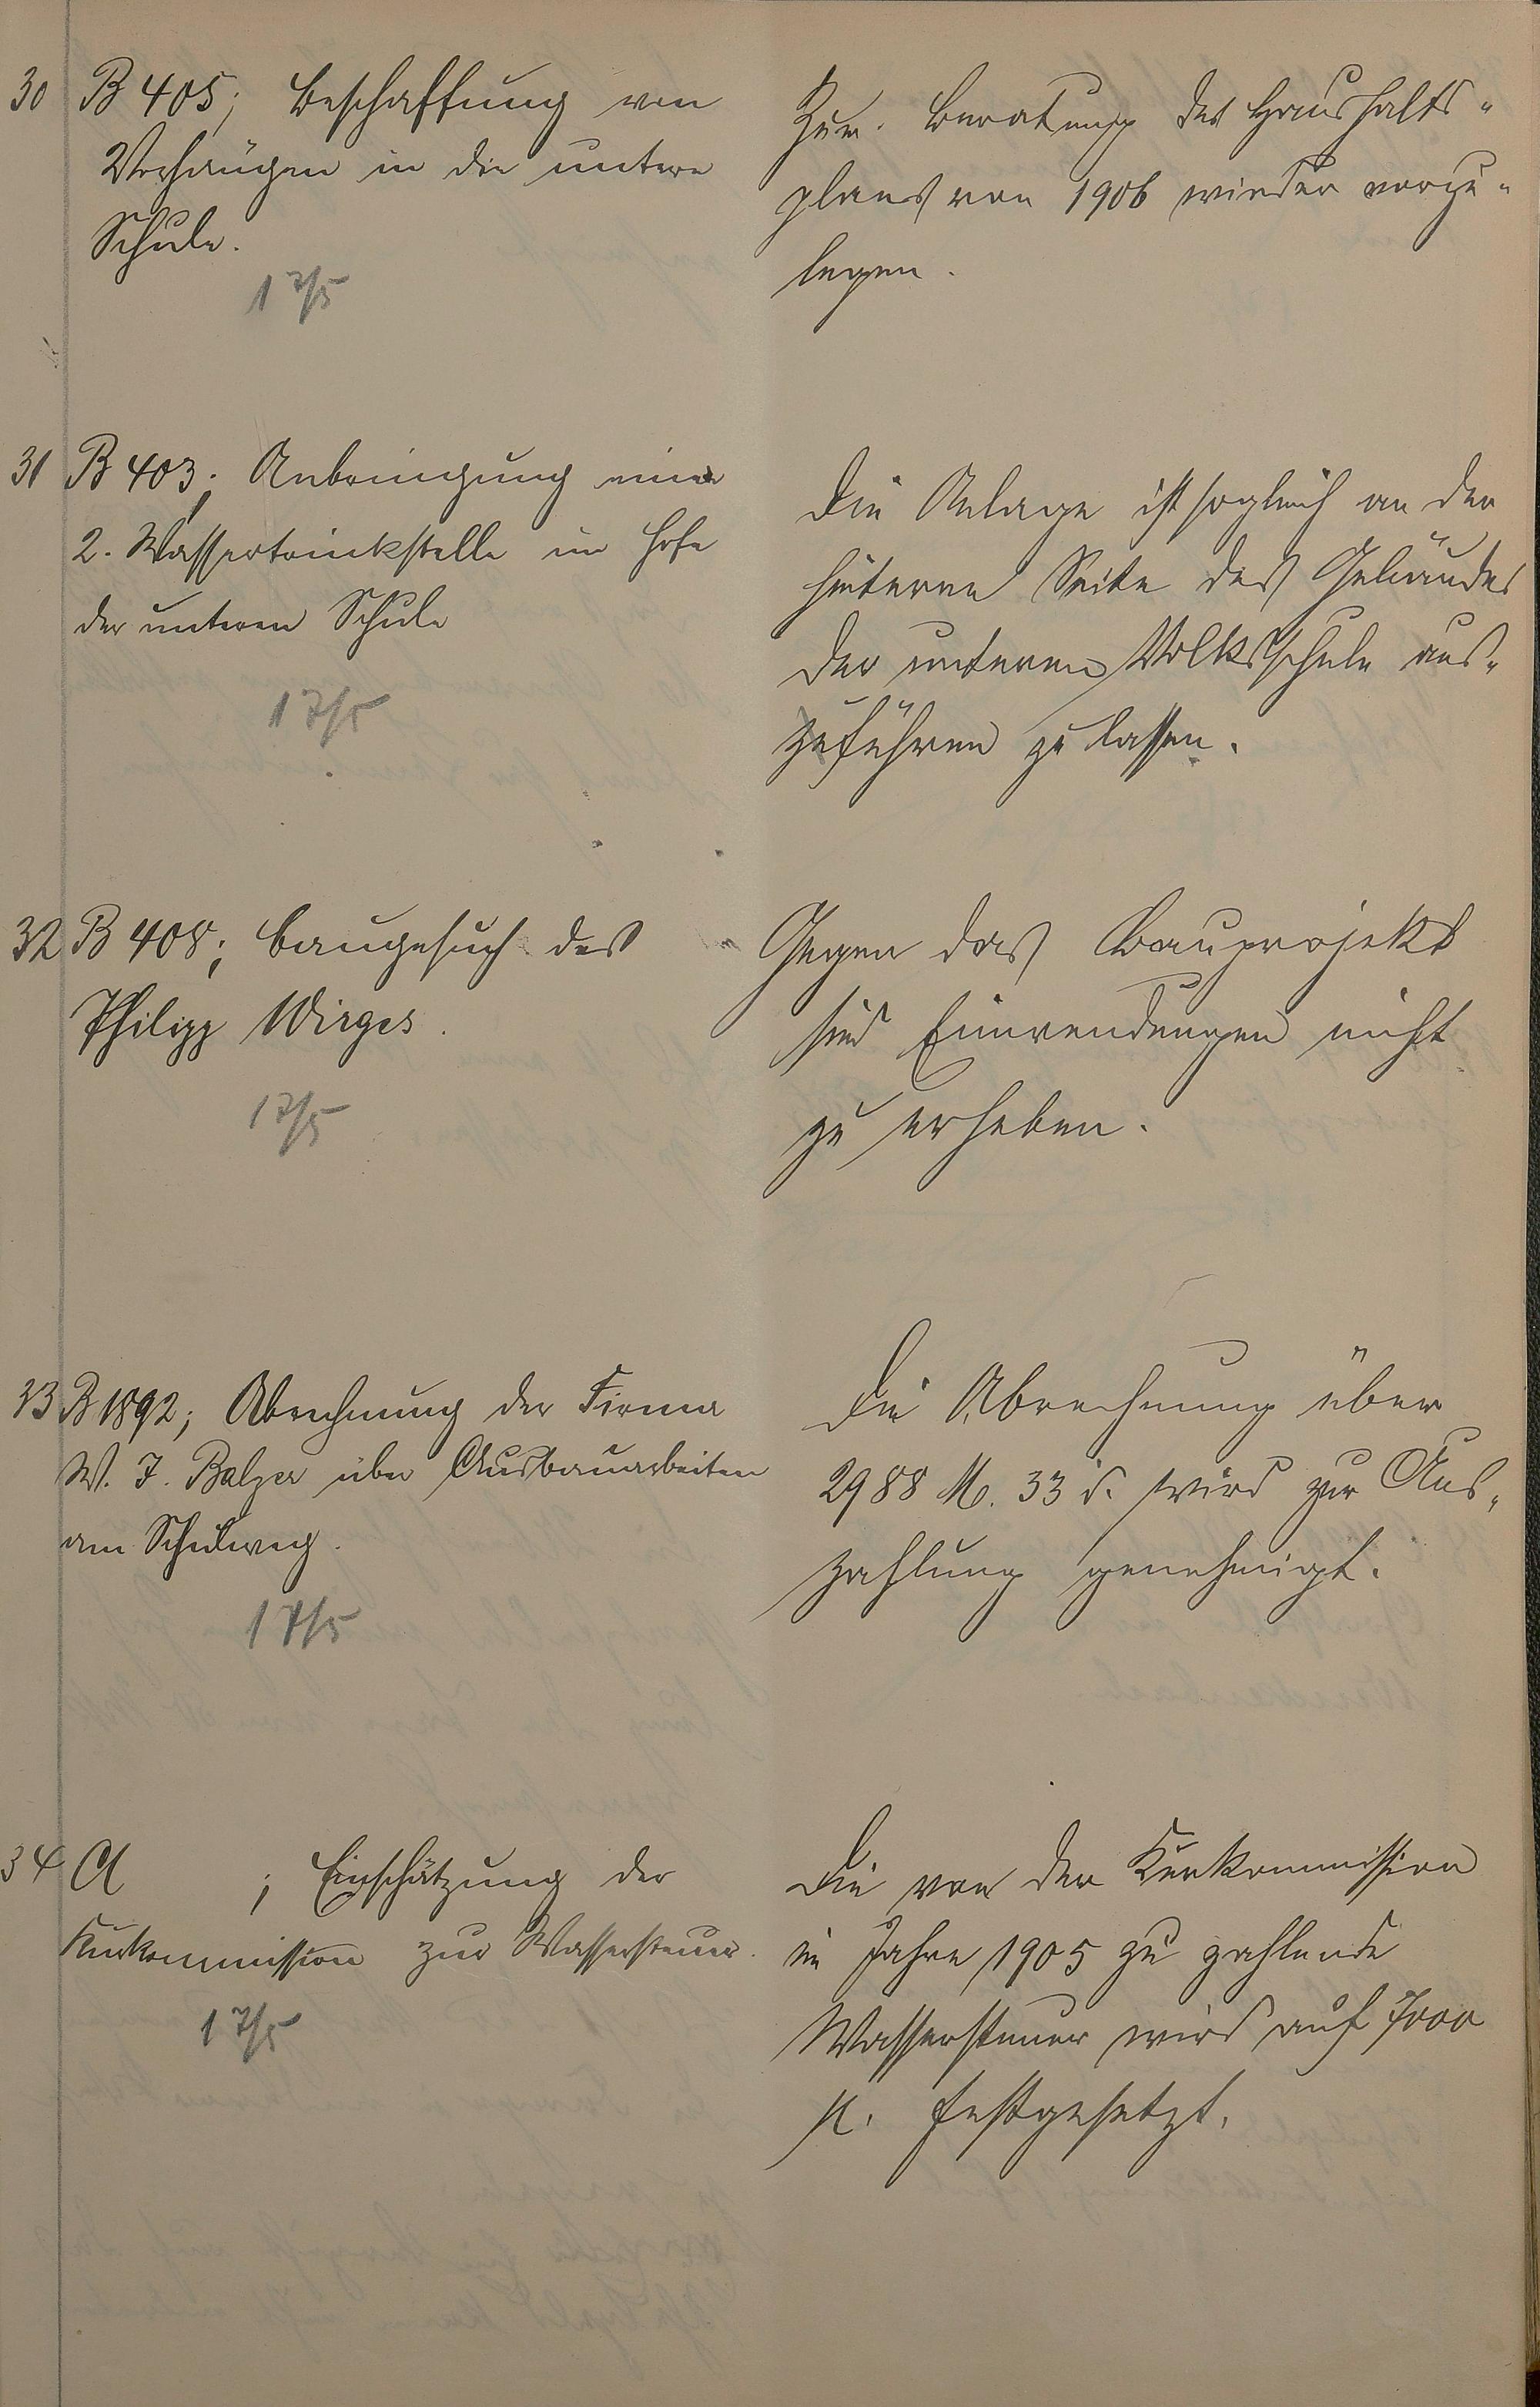 30 B 405; Beschaffung von
Vorhängen in die untere
Schule.
17/5
Zur Beratung des Haushalts-
plans von 1906 wieder vorzu-
legen.
31 B 403; Anbringung einer
2. Wassertrinkstelle im Hofe
der unteren Schule
17/5
Die Anlage ist sogleich an der
hinteren Seite des Gebäudes
der unteren Volksschule aus-
zuführen zu lassen.
32 B 408; Baugesuch des
Philipp Wirges.
17/5
Gegen das Bauprojekt
sind Einwendungen nicht
zu erheben.
33 B 1892; Abrechnung der Firma
W. J. Balzer über Ausbauarbeiten
am Schulweg.
17/5
Die Abrechnung über
2988 M. 33 d. wird zur Aus-
zahlung genehmigt.
34 A ; Einschätzung der
Kurkommission zur Wassersteuer.
17/5
Die von der Kurkommission
im Jahre 1905 zu zahlende
Wassersteuer wird auf 7000
M. festgesetzt.